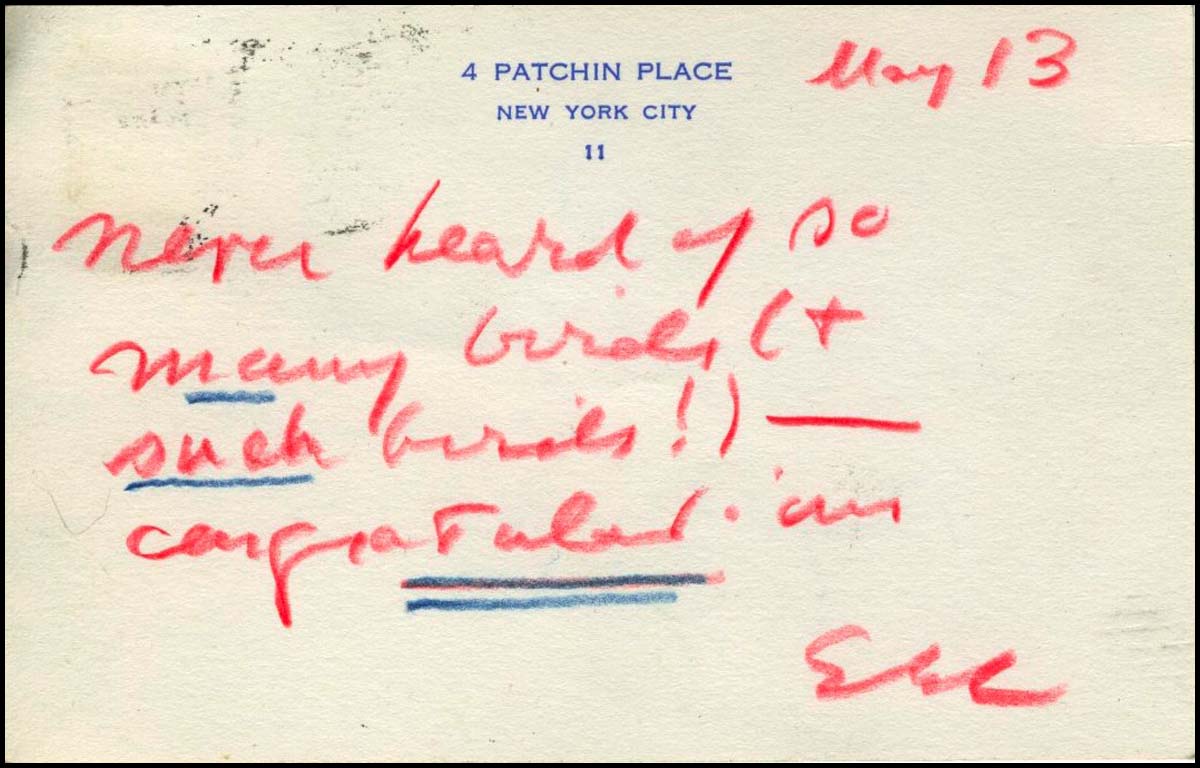 4 PATCHIN PLACE
May 13
NEW YORK CITY
11
never heard of so
many birds (+
such birds!) —
congratulations
EEC